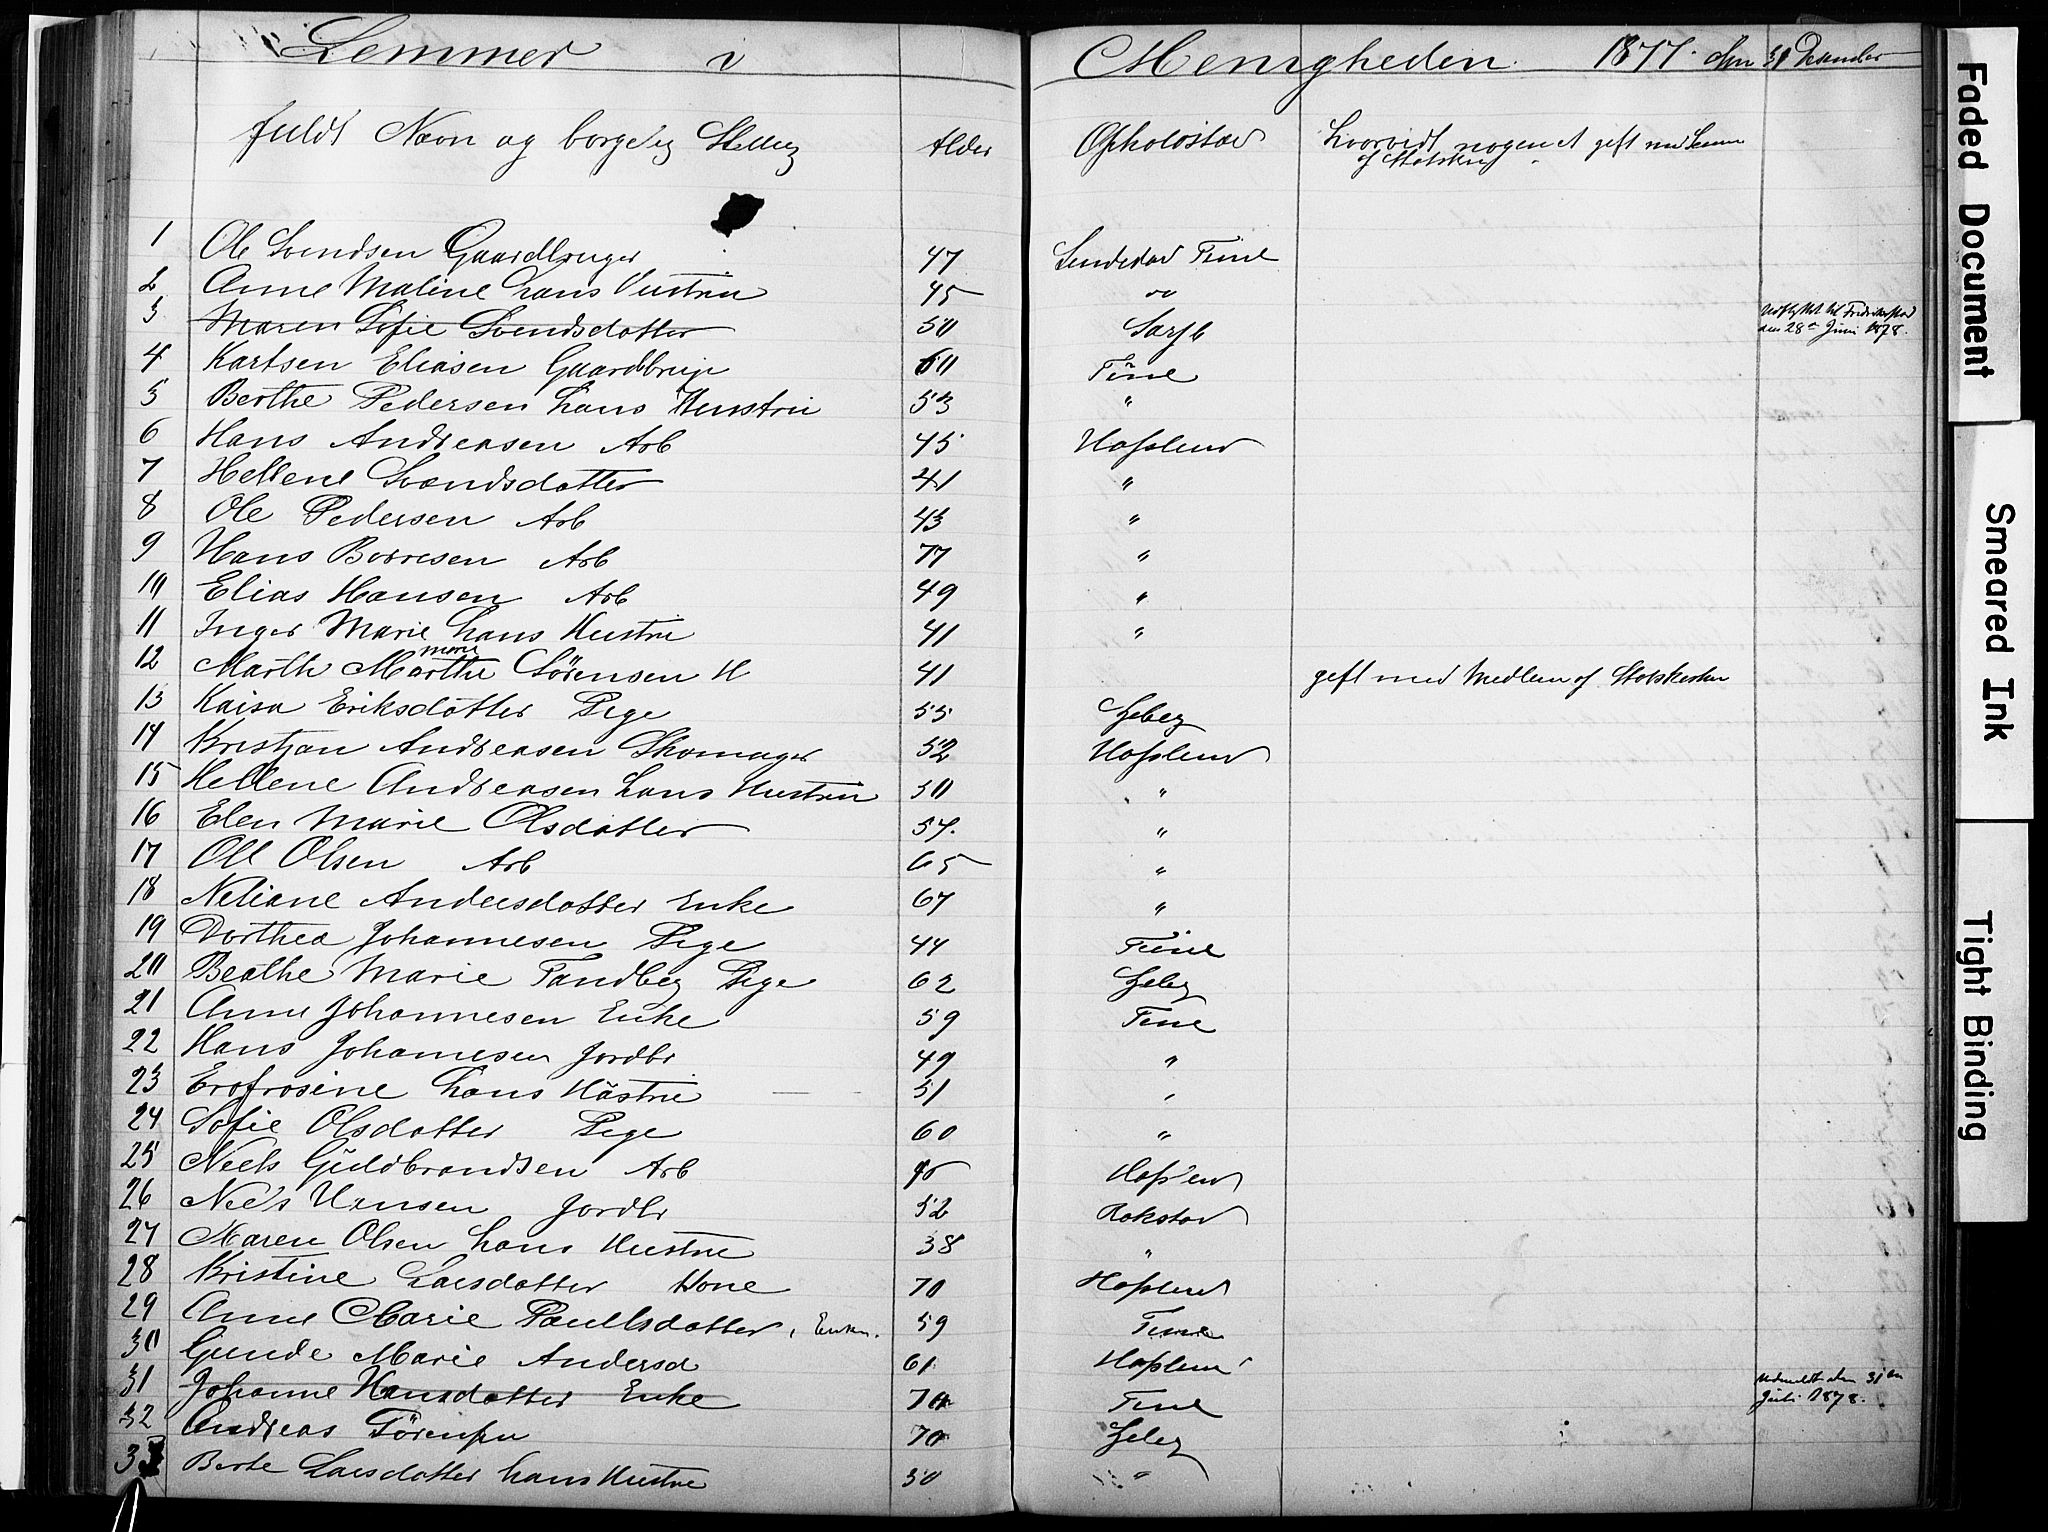 Lemmer i Menigheden. 1877. den 31 December
fuldt Navn og borgelig Stelling Alder Opholdstad Hvorvidt nogen et geft med Lem
af Statskirk
1 Ole Svendsen Gaardbruger 47 Sundstad Tune
2 Anne Maline hans Hustru 45 "
3 Maren Sofie Svendsdatter 50 Sarpb Udflyttet til Fredrikstad
den 28de Juni 1878.
4 Kartsen Eliasen Gaardbrug 60 Tune
5 Berthe Pedersen hans Hustru 53 "
6 Hans Andreasen Arb 45 Hafslund
7 Hellene Svendsdatter 41 "
8 Ole Pedersen Arb 43 "
9 Hans Borresen Arb 77 "
10 Elias Hansen Arb 49 "
11 Inger Marie hans Hustru 41 "
marie
12 Marth Marthe Sörensen H 41 geft med Medlem af Statskirken
13 Kaisa Eriksdotter Pige 55 Gleng
14 Kristjan Andreasen Skomager 52 Hafslund
15 Hellene Andreasen hans Hustru 50 "
16 Elen Marie Olsdatter 57. "
17 Ole Olsen Arb 65 "
18 Neliane Andersdatter Enke 67 "
19 Dorthea Johannesen Pige 44 Tune
20 Beathe Marie Tandbeg Pige 62 Gleng
21 Anne Johannesen Enke 59 Tune
22 Hans Johannesen Jordbr 49 "
23 Erofrosine hans Hüstru 51 "
24 Sofie Olsdatter Pige 60 "
25 Neels Güldbrandsen Arb 45 Hafslund
26 Neels Hansen Jordbr 52 Rokstad
27 Maren Olsen hans Hustru 38 "
28 Kristine Larsdatter Kone 70 Hafslund
29 Anne Marie Paulsdatter, Enken. 59 Tune
30 Gunde Marie Andersd 61 Hafslund
31 Johanne Hansdatter Enke 70 Tune Udmeldt den 31te
Juli 1878.
32 Andreas Törensen 70 Gleng
33 Berte Larsdatter hans Hustru 50 "
Faded Document
Smeared Ink
Tight Binding